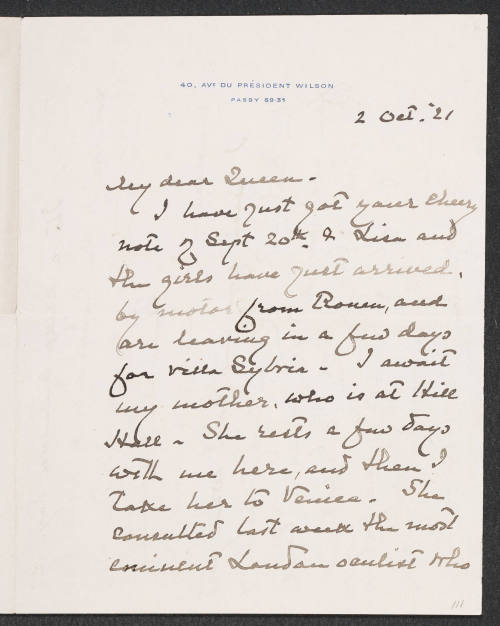 40, AVE DU PRÉSIDENT WILSON
PASSY 89-35
2 Oct. '21
My dear Queen -
I have just got your cheery
note of Sept 20th. & Lisa and
the girls have just arrived,
by motor from Rouen, and
are leaving in a few days
for villa Sylvia - I await
my mother, who is at Hill
Hall - She rests a few days
with me here, and then I
take her to Venice. She
consulted last week the most
eminent London oculist who
111